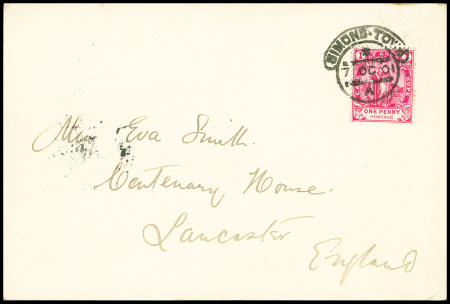 SIMONS-TOWN
7 OC 01
A
ONE PENNY
POSTAGE
Miss Eva Smith.
Centenary House.
Lancaster
England